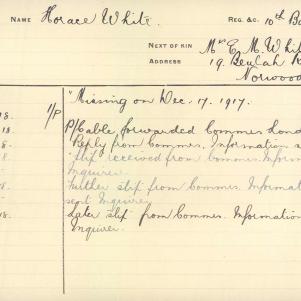 NAME Horace White. REG. &C. 10th Ba
NEXT OF KIN Mrs E. M. Whit
ADDRESS 19. Beulah R
Norwood
"Missing on Dec. 17. 1917.
18. 1/P P/Cable forwarded Commes Lond
18. Reply from Commes. Information s
Slip received from Commes. Inform
Inquirer.
Further slip from Commes. Informat
sent Inquirer
18. Later slip from Commes. Information
Inquirer.